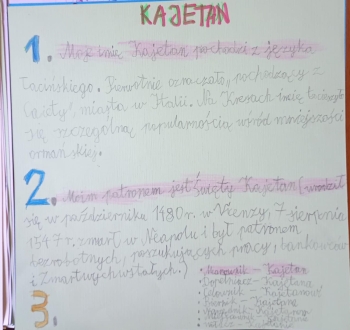 KAJETAN
1. Moje imię Kajetan pochodzi z języka
łacińskiego. Pierwotnie oznaczało, pochodzący z
Gaety, miasta w Italii. Na Kresach imię to cieszyło
się szczególną popularnością wśród mniejszości
ormiańskiej.
2. Moim patronem jest Święty Kajetan (urodził
się w październiku 1480 r. w Vicenzy, 7 sierpnia
1547 r. zmarł w Neapolu i był patronem
bezrobotnych, poszukujących pracy, bankowców
i Zmartwychwstałych.)
3. Mianownik - Kajetan
Dopełniacz - Kajetana
Celownik - Kajetanowi
Biernik - Kajetana